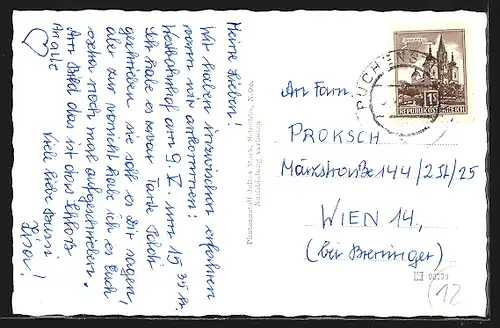 Meine Lieben!
Wir haben inzwischen erfahren
wann wir ankommen:
Westbahnhof am 9. V. um 15 35 h.
Ich habe es zwar Tante Poldi
geschrieben sie soll es Dir sagen,
aber zur vorsicht habe ich es Euch
extra noch mal aufgeschrieben.
Am Bild das ist das Schloß.
Viele liebe
Lisa!
Photoanstalt Julius
Nachbildung verboten
MARIAZELL
1S
REPUBLIK ÖSTERREICH
PUCHENS
An Fam.
PROKSCH
Märkstraße 144/2St/25
WIEN 14.,
(bei Brenninger)
(12)